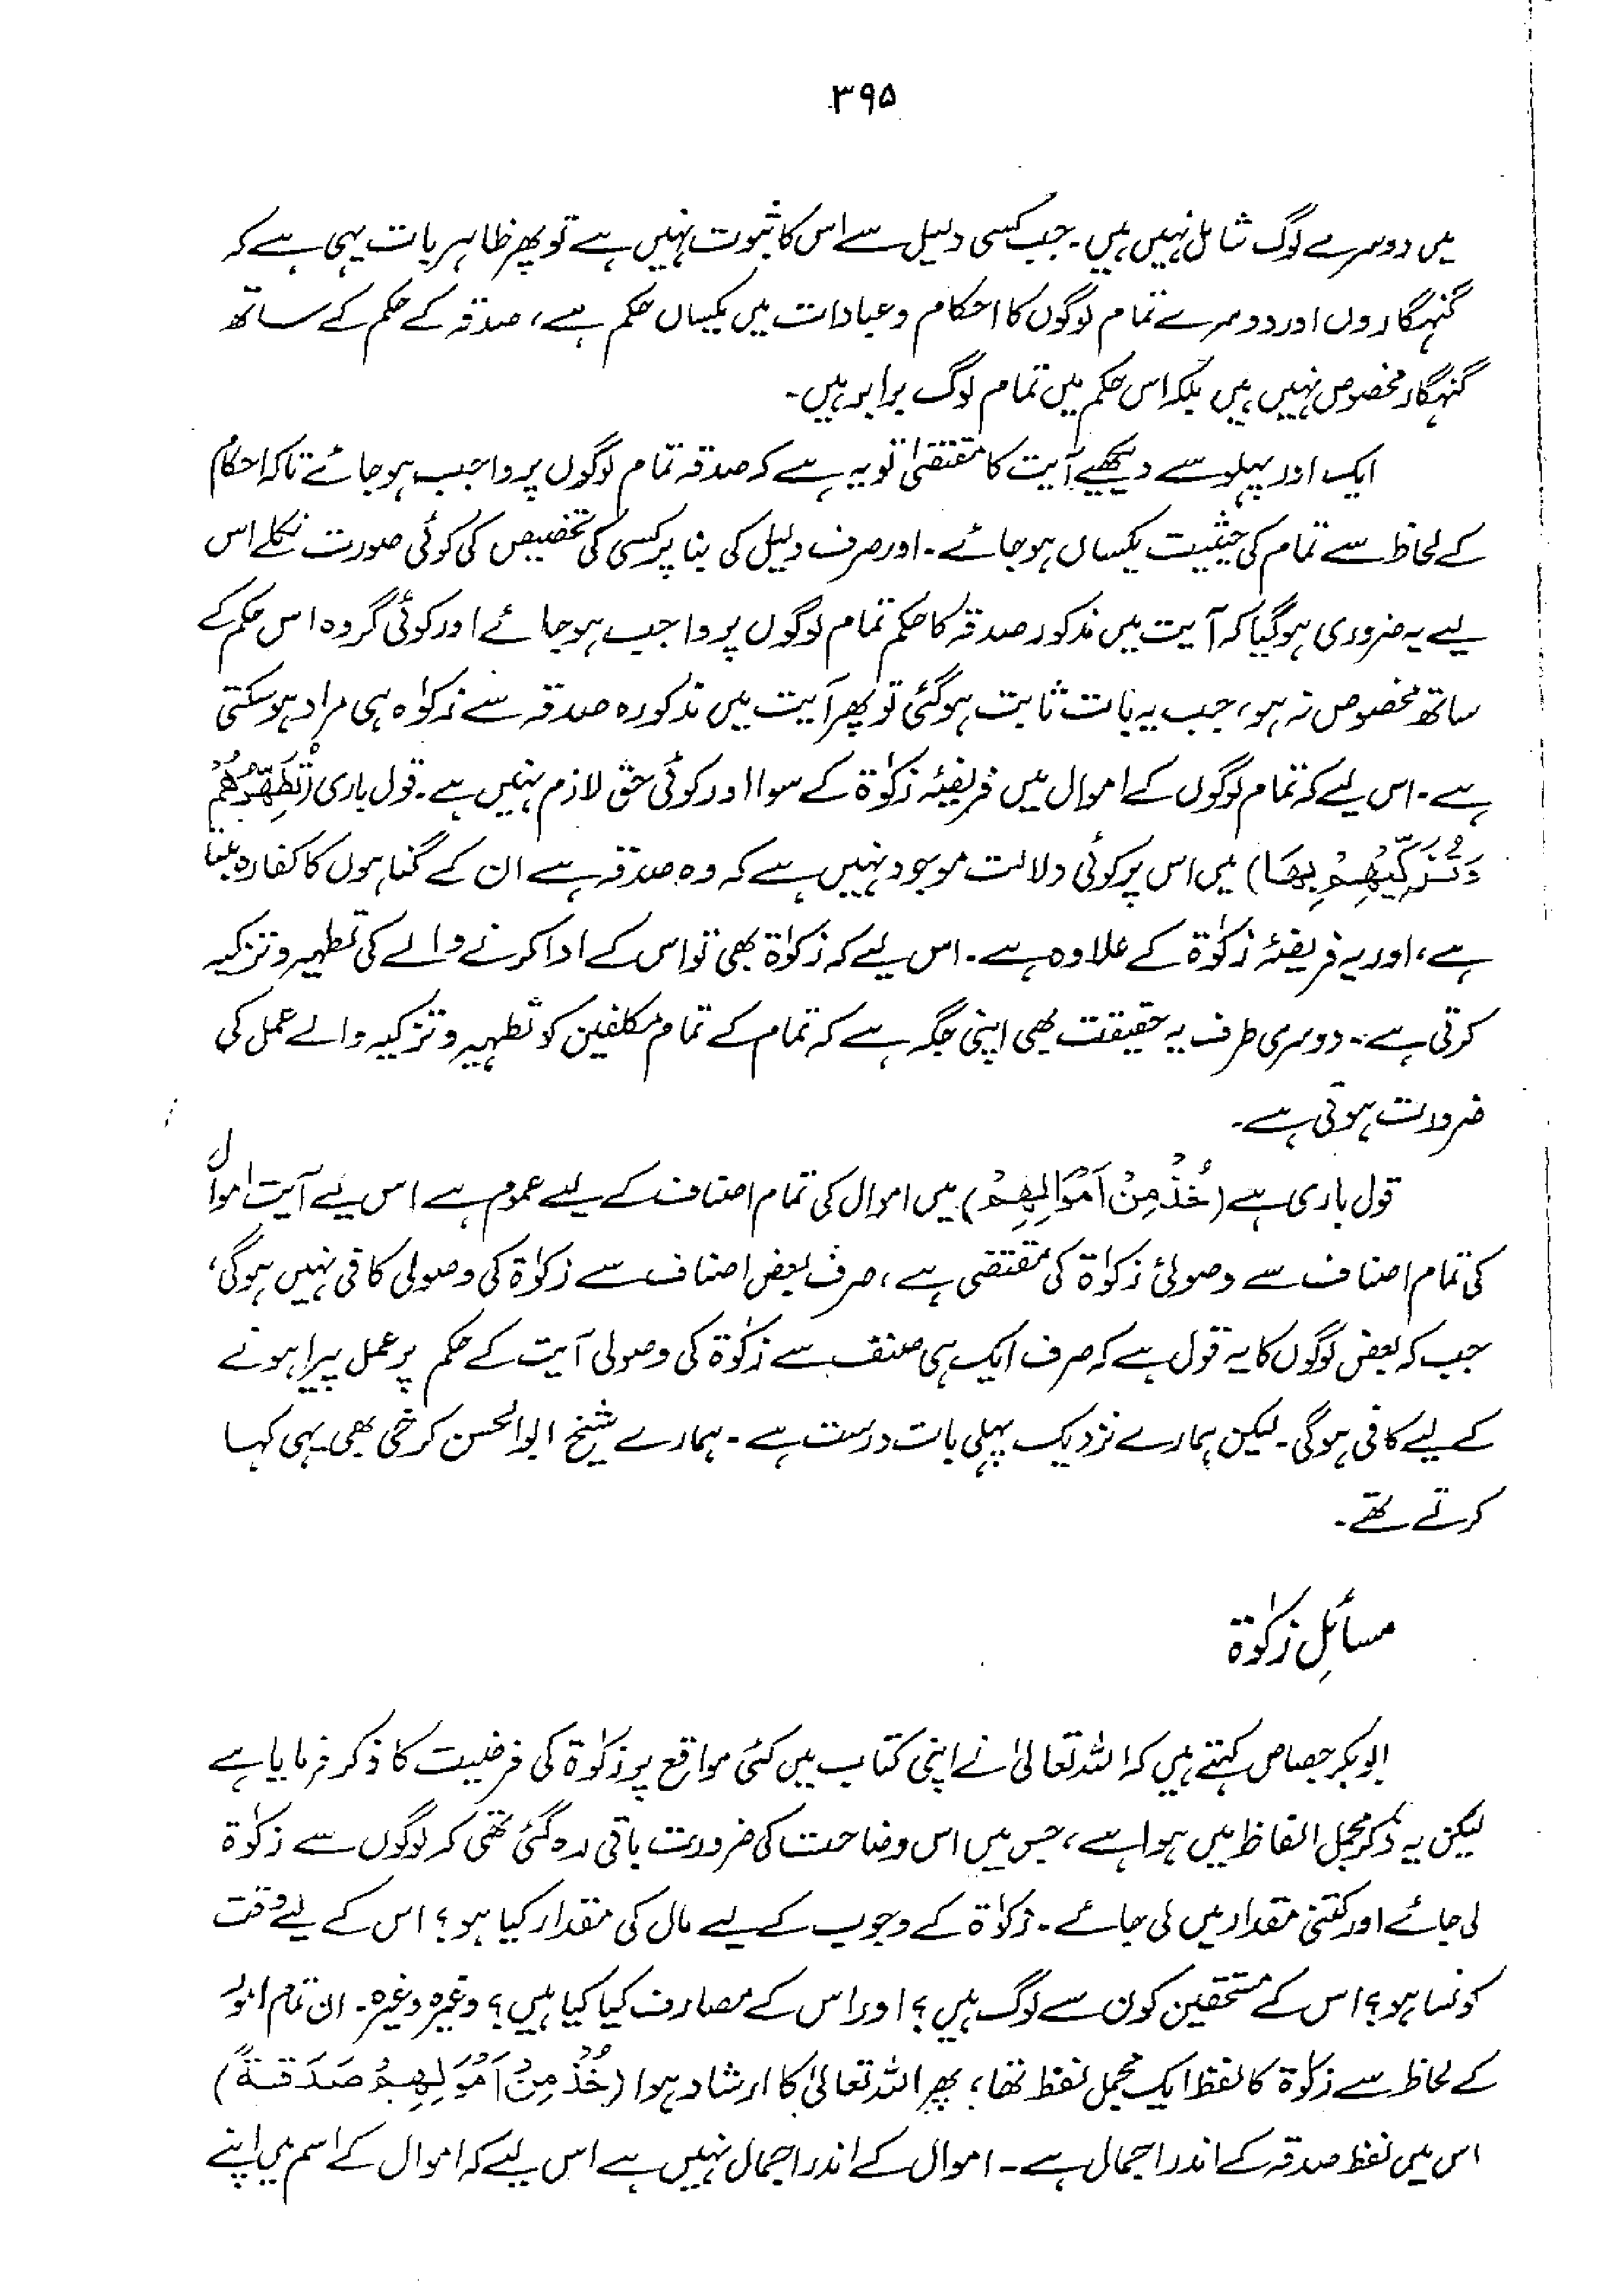 ۳۹۵
میں دوسرے لوگ شامل نہیں ہیں۔ جب کسی دلیل سے اس کا ثبوت نہیں ہے تو پھر ظاہر بات یہی ہے کہ
گنہگاروں اور دوسرے تمام لوگوں کا احکام و عبادات میں یکساں حکم ہے، صدقہ کے حکم کے ساتھ
گنہگار مخصوص نہیں ہیں بلکہ اس حکم میں تمام لوگ برابر ہیں۔
ایک اور پہلو سے دیکھیے آیت کا مقتضیٰ تو یہ ہے کہ صدقہ تمام لوگوں پر واجب ہو جائے تاکہ احکام
کے لحاظ سے تمام کی حیثیت یکساں ہو جائے۔ اور صرف دلیل کی بنا پر کسی کی تخصیص کی کوئی صورت نکلے اس
لیے یہ ضروری ہوگیا کہ آیت میں مذکور صدقہ کا حکم تمام لوگوں پر واجب ہو جائے اور کوئی گروہ اس حکم کے
ساتھ مخصوص نہ ہو، جب یہ بات ثابت ہوگئی تو پھر آیت میں مذکورہ صدقہ سے زکوٰہ ہی مراد ہوسکتی
ہے۔ اس لیے کہ تمام لوگوں کے اموال میں فریضۂ زکوٰۃ کے سوا اور کوئی حق لازم نہیں ہے۔ قول باری (تُطَهِّرُهُمْ
وَتُزَكِّيْهِمْ بِهَا) میں اس پر کوئی دلالت موجود نہیں ہے کہ وہ صدقہ ہے ان کے گناہوں کا کفارہ بنتا
ہے، اور یہ فریضۂ زکوٰۃ کے علاوہ ہے۔ اس لیے کہ زکوٰۃ بھی تو اس کے ادا کرنے والے کی تطہیر و تزکیہ
کرتی ہے۔ دوسری طرف یہ حقیقت بھی اپنی جگہ ہے کہ تمام کے تمام مکلفین کو تطہیر و تزکیہ والے عمل کی
ضرورت ہوتی ہے۔
قول باری ہے (خُذْ مِنْ اَمْوَالِهِمْ) میں اموال کی تمام اصناف کے لیے عموم ہے اس لیے آیت اموال
کی تمام اصناف سے وصولئ زکوٰۃ کی مقتضی ہے، صرف بعض اصناف سے زکوٰۃ کی وصولی کافی نہیں ہوگی،
جب کہ بعض لوگوں کا یہ قول ہے کہ صرف ایک ہی صنف سے زکوٰۃ کی وصولی آیت کے حکم پر عمل پیرا ہونے
کے لیے کافی ہوگی۔ لیکن ہمارے نزدیک پہلی بات درست ہے۔ ہمارے شیخ ابوالحسن کرخی بھی یہی کہا
کرتے تھے۔
مسائلِ زکوٰۃ
ابوبکر جصاص کہتے ہیں کہ اللہ تعالیٰ نے اپنی کتاب میں کئی مواقع پر زکوٰۃ کی فرضیت کا ذکر فرمایا ہے
لیکن یہ ذکر مجمل الفاظ میں ہوا ہے، جس میں اس وضاحت کی ضرورت باقی رہ گئی تھی کہ لوگوں سے زکوٰۃ
لی جائے اور کتنی مقدار میں لی جائے۔ زکوٰۃ کے وجوب کے لیے مال کی مقدار کیا ہو؟ اس کے لیے وقت
کونسا ہو؟ اس کے مستحقین کون سے لوگ ہیں؟ اور اس کے مصارف کیا کیا ہیں؟ وغیرہ وغیرہ۔ ان تمام امور
کے لحاظ سے زکوٰۃ کا لفظ ایک مجمل لفظ تھا، پھر اللہ تعالیٰ کا ارشاد ہوا (خُذْ مِنْ اَمْوَلِهِمْ صَدَقَةً)
اس میں لفظ صدقہ کے اندر اجمال ہے۔ اموال کے اندر اجمال نہیں ہے اس لیے کہ اموال کے اسم میں اپنے